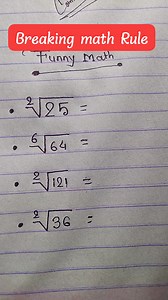 Breaking math Rule
Funny Math
• ²√25 =
• ⁶√64 =
• ²√121 =
• ²√36 =